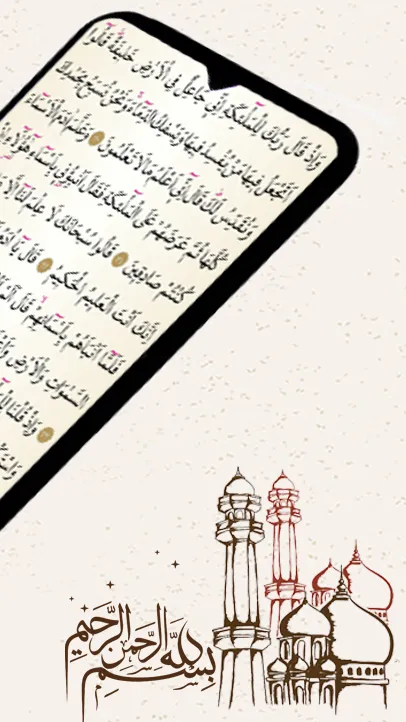 وَإِذْ قَالَ رَبُّكَ لِلْمَلٰٓئِكَةِ إِنِّي جَاعِلٌ فِي الْأَرْضِ خَلِيفَةً قَالُوا
أَتَجْعَلُ فِيهَا مَنْ يُفْسِدُ فِيهَا وَيَسْفِكُ الدِّمَاءَ وَنَحْنُ نُسَبِّحُ بِحَمْدِكَ
وَنُقَدِّسُ لَكَ قَالَ إِنِّي أَعْلَمُ مَا لَا تَعْلَمُونَ ٣٠ وَعَلَّمَ آدَمَ الْأَسْمَاءَ
كُلَّهَا ثُمَّ عَرَضَهُمْ عَلَى الْمَلٰٓئِكَةِ فَقَالَ أَنْبِئُونِي بِأَسْمَاءِ هٰٓؤُلَاءِ
كُنْتُمْ صَادِقِينَ ٣١ قَالُوا سُبْحَانَكَ لَا عِلْمَ لَنَا إِلَّا
إِنَّكَ أَنْتَ الْعَلِيمُ الْحَكِيمُ ٣٢ قَالَ يَا آدَمُ
فَلَمَّا أَنْبَأَهُمْ بِأَسْمَائِهِمْ قَالَ
السَّمٰوَاتِ وَالْأَرْضِ
٣٣ وَإِذْ قُلْنَا
بِسْمِ اللَّهِ الرَّحْمٰنِ الرَّحِيمِ